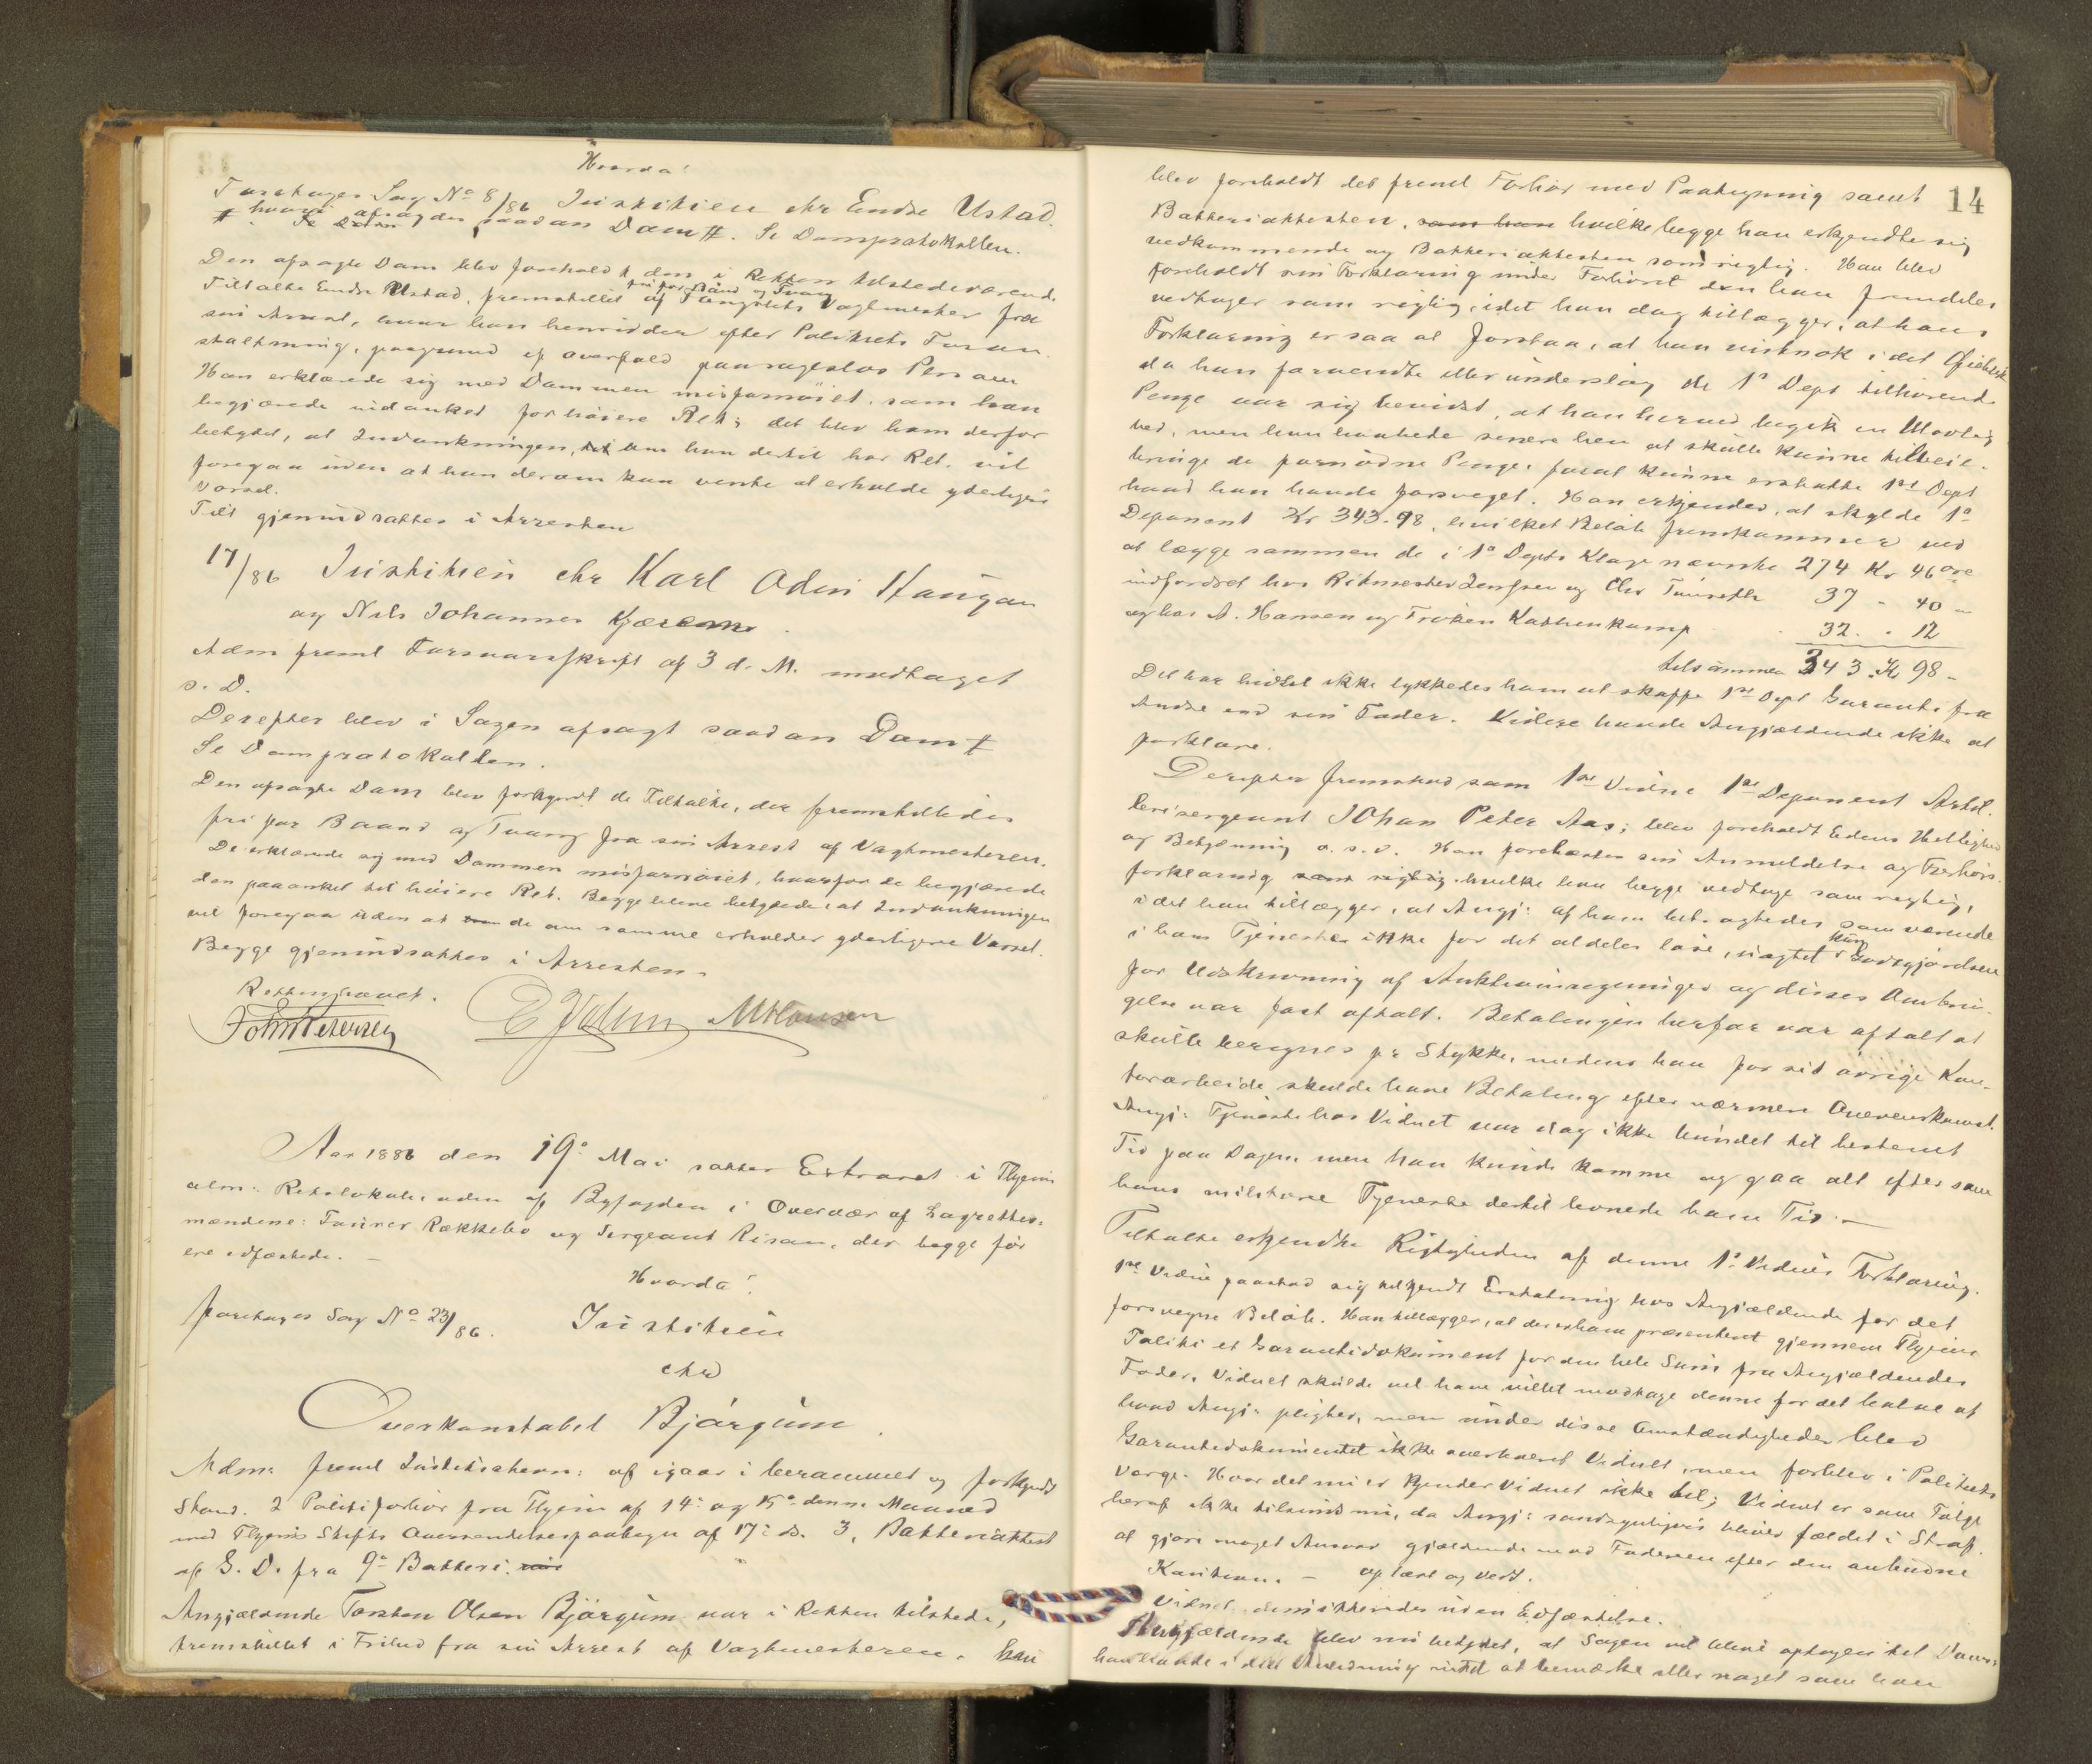 Hvorda:
Foretages Sag No 8/86 Justitien ctr Endre Ustad.
# hvori afsagdes saadan Dom #. Se Domprotokollen.
Den afsagte Dom blev foreholdt den i Retten tilstedeværende
fri for Baand og Tvang
Tiltalte Endre Ustad, fremstillet af Fængslets Vagtmester fra
sin Arrest, hvor han hensidder efter Politiets Foran-
staltning, paagrund af Overfald paa sagesløs Person
Han erklærede sig med Dommen misfornøiet, som han
begjærede indanket for høiere Ret; det blev ham derfor
betydet, at Indankningen, om han dertil har Ret, vil
foregaa uden at han derom kan vente at erholde yderligere
Varsel.
Tilt gjenindsattes i Arresten
17/86 Justitien ctr Karl Odin Haugan
og Nils Johannes Kjærem
Adm freml Forsvarsskrift af 3 d. M. modtaget
s. D.
Derefter blev i Sagen afsagt saadan Dom #
Se Domprotokollen.
Den afsagte Dom blev forkyndt de Tiltalte, der fremstilledes
fri for Baand og Tvang fra sin Arrest af Vagtmesteren.
De erklærede sig med Dommen misfornøiet, hvorfor de begjærede
den paaanket til høiere Ret. Begge blive betydede, at Indankningen
vil foregaa uden at de om samme erholder yderligere Varsel.
Begge gjenindsattes i Arresten.
Retten hævet.
John Petersen M Hansen
Aar 1886 den 19de Mai sattes Extraret i Thjems
alm: Retslokale, aden af Byfogden i Overvær af Lagrettes-
mændene: Farver Rækkebo og Sergeant Risan, der begge før
ere edfæstede. –
Hvorda:
foretages Sag No 23/86. Justitien
ctr
Overkonstabel Bjørgum.
Adm: freml Justitsaktion: af igaar i berammet og forkyndt
Stand. 2 Politiforhør fra Thjem af 14de og 15de denne Maaned
med Thjems Stifts Oversendelsespaategn af 17de ds. 3, Batteriattest
af S. D. fra 9de Batteri.
Angjældende Torsten Olsen Bjørgum var i Retten tilstede,
fremstillet i Frihed fra sin Arrest af Vagtmesteren. han
14
blev foreholdt det freml Forhør med Paategning samt
Batteriattesten, som han hvilke begge han erkjendte sig
vedkommende og Batteriattesten som rigtig. Han blev
foreholdt sin Forklaring under Forhøret den han fremdeles
vedtager som rigtig, idet han dog tillægger, at hans
Forklaring er saa at forstaa, at han vistnok i det Øieblik
da han forvendte eller underslog de 1ste Dept tilhørende
Penge var sig bevidst, at han herved begik en Ulovlig-
hed, men han haabede senere hen at skulle kunne tilveie-
bringe de fornødne Penge, forat kunne erstatte 1ste Dept
hvad han havde forsveget. Han erkjendes, at skylde 1ste
Deponent Kr 343.98, hvilket Beløb fremkommer ved
at lægge sammen de i 1ste Depts Klage nævnte 274 Kr 46 øre
indfordret hos Ritmester Jenssen og Chr Taüseth 37 " 40 "
og hos A. Hansen og Frøken Kathenkamp 32. " 12
tilsammen 343 Kr 98 –
Det har hidtil ikke lykkedes ham at skaffe 1ste Dept Garanti fra
Andre end sin Fader. Videre havde Angjældende ikke at
forklare.
Derefter fremstod som 1ste Vidne 1ste Deponent Artil-
lerisergeant Johan Peter Aas; blev foreholdt Edens Hellighed
og Betydning o. s. v. Han forelæstes sin Anmeldelse og Forhørs-
forklaring som rigtig hvilke han begge vedtage som rigtig,
idet han tillægger, at Angj: af ham betragtedes som værende
i hans Tjeneste ikke for det aldeles løse, uagtet kun Godtgjørelsen
for Udskrivning af Auktionsregninger og disses Ombrin-
gelse var fast aftalt. Betalingen herfor var aftalt at
skulle beregnes pr Stykke, medens han for sit øvrige Kon-
torarbeide skulde have Betaling efter nærmere Overenskomst.
Angj: Tjeneste hos Vidnet var dog ikke bundet til bestemt
Tid paa Dagen, men han kunde komme og gaa alt efter som
hans militære Tjeneste dertil levnede ham Tid. –
Tiltalte erkjendte Rigtigheden af denne 1ste Vidnes Forklaring.
1ste Vidne paastod sig tilkjendt Erstatning hos Angjældende for det
forsvegne Beløb. Han tillægger, at der er ham præsenteret gjennem Thjems
Politi et Garantidokument for den hele Sum fra Angjældendes
Fader. Vidnet skulde vel have villet modtage denne for det halve af
hvad Angj: pligter, men under disse Omstændigheder blev
Garantidokumentet ikke overleveret Vidnet, men forblev i Politiets
Værge. Hvor det nu er kjender Vidnet ikke til; Vidnet er som Følge
heraf ikke tilsinds nu, da Angj: sandsynligvis bliver fældet i Straf.
at gjøre noget Ansvar gjældende mod Faderen efter den anbudne
Kaution. – Oplæst og vedt.
Vidnet demitteredes uden Edfæstelse.
Angjældende blev nu betydet, at Sagen vil blive optagen til Doms
han havde i den Anledning intet at bemærke eller noget som han